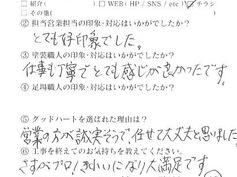 □ 紹介( ) □ WEB(HP / SNS / etc) □ チラシ
□ その他( )
② 担当営業担当の印象・対応はいかがでしたか?
とても好印象でした。
③ 塗装職人の印象・対応はいかがでしたか?
仕事も丁寧でとても感じが良かったです。
④ 足場職人の印象・対応はいかがでしたか?
⑤ グッドハートを選ばれた理由は?
営業の方が誠実そうで、任せて大丈夫と思いました
⑥ 工事を終えてのお気持ちを教えてください。
さすがプロ!きれいになり大満足です。